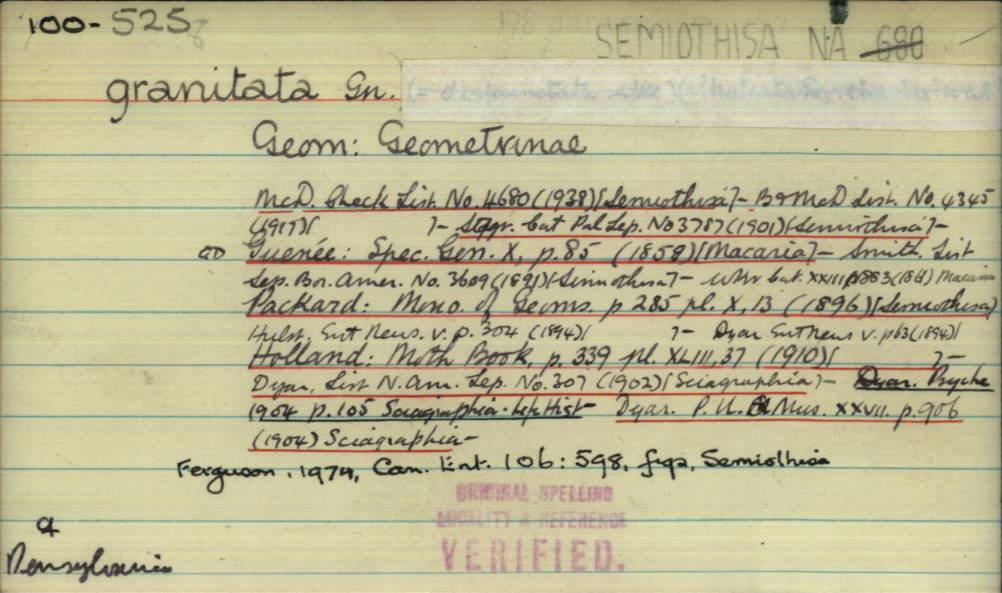 100-525
SEMIOTHISA NA 680
granitata Gn.
Geom: Geometrinae
McD. Check List. No. 4680 (1938) [Semiothisa] - B & McD List. No. 4345
(1917) [ ] - Stgr. Cat Pal Lep. No 3787 (1901) [Semiothisa] -
OD Guenée: Spec. Gen. X, p.85 (1858) [Macaria] - Smith. List
Lep. Bor. Amer. No. 3609 (1891) [Semiothisa] - Wkr Cat. XXIII p883 (1861) Macaria
Packard: Mono. of Geoms. p 285 pl. X, 13 (1896) [Semiothisa]
Hulst. Ent News. v. p. 304 (1894) [ ] - Dyar Ent News v. p63 (1894) [
Holland: Moth Book, p. 339 pl. XLIII, 37 (1910) [ ] -
Dyar, List N. Am. Lep. No. 307 (1902) [Sciagraphia] - Dyar. Psyche
1904 p. 105 Sciagraphia. Life Hist - Dyar. P. U. Mus. XXVII. p. 906
(1904) Sciagraphia -
Ferguson, 1974, Can. Ent. 106: 598, figs, Semiothisa
ORIGINAL SPELLING
LOCALITY & REFERENCE
VERIFIED.
Pensylvania